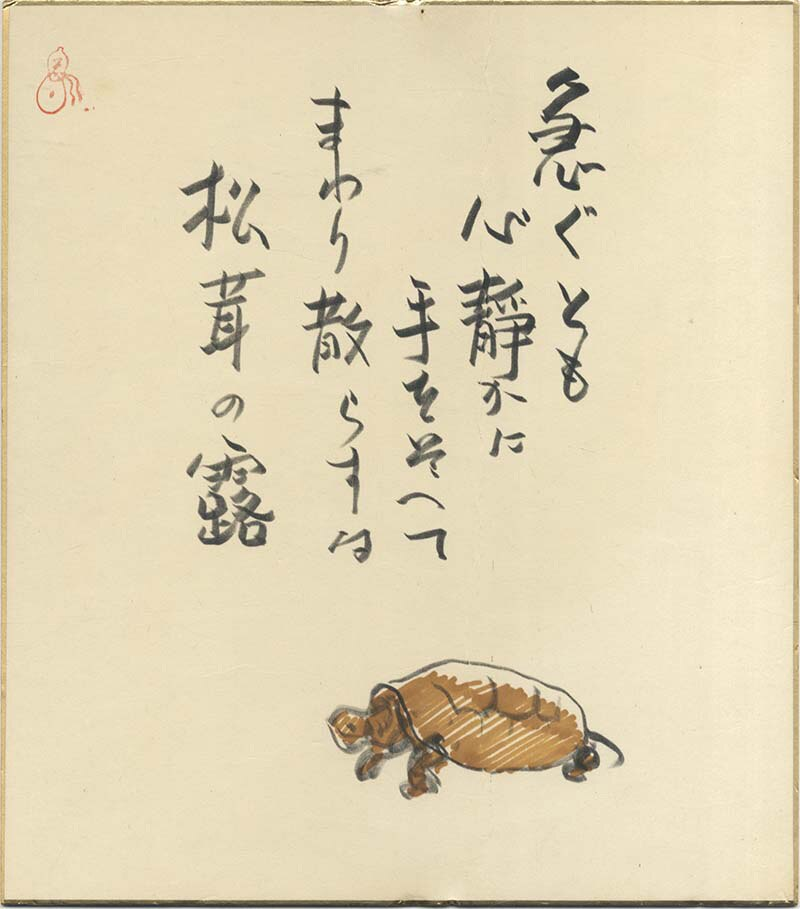 急ぐとも
心靜かに
手をそへて
まわり散らすな
松茸の露